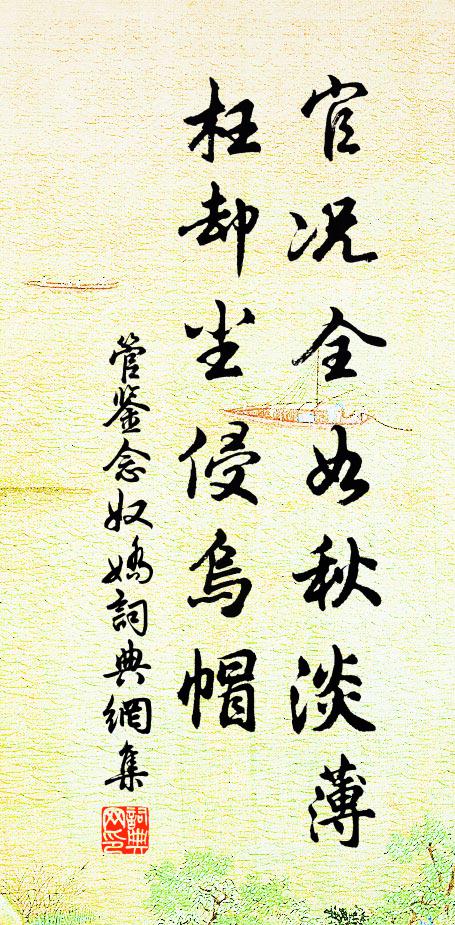 官况全如秋淡薄
枉却尘侵乌帽
管鉴念奴娇詞典網集
詞典网印